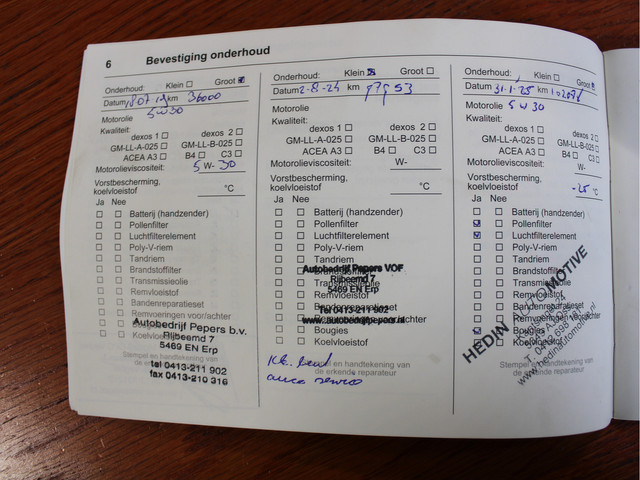 6 Bevestiging onderhoud
Onderhoud: Klein Groot
Datum km 36000
Motorolie 5W30
Kwaliteit:
dexos 1 dexos 2
GM-LL-A-025 GM-LL-B-025
ACEA A3 B4 C3
Motorolieviscositeit: 5 W- 30
Vorstbescherming,
koelvloeistof °C
Ja Nee
Batterij (handzender)
Pollenfilter
Luchtfilterelement
Poly-V-riem
Tandriem
Brandstoffilter
Transmissieolie
Remvloeistof
Bandenreparatieset
Remvoeringen voor/achter
Koelvloeistof
Autobedrijf Pepers b.v.
Rijbeemd 7
5469 EN Erp
Stempel en handtekening van
tel 0413-211 902
fax 0413-210 316
Onderhoud: Klein Groot
Datum 2-8-24 km
Motorolie
Kwaliteit:
dexos 1 dexos 2
GM-LL-A-025 GM-LL-B-025
ACEA A3 B4 C3
Motorolieviscositeit: W-
Vorstbescherming,
koelvloeistof °C
Ja Nee
Batterij (handzender)
Pollenfilter
Luchtfilterelement
Poly-V-riem
Tandriem
Autobedrijf Pepers VOF
Rijbeemd 7
5469 EN Erp
Transmissieolie
Remvloeistof
Bandenreparatieset
Tel 0413-211 902
www.autobedrijfpepers.nl
Bougies
Koelvloeistof
Stempel en handtekening van
de erkende reparateur
Onderhoud: Klein Groot
Datum 31-1-25 km
Motorolie 5W30
Kwaliteit:
dexos 1 dexos 2
GM-LL-A-025 GM-LL-B-025
ACEA A3 B4 C3
Motorolieviscositeit: W-
Vorstbescherming,
koelvloeistof -25 °C
Ja Nee
Batterij (handzender)
Pollenfilter
Luchtfilterelement
Poly-V-riem
Tandriem
Brandstoffilter
Transmissieolie
Remvloeistof
Bandenreparatieset
Remvoeringen voor/achter
Bougies
Koelvloeistof
HEDIN AUTOMOTIVE
Stempel en handtekening van
de erkende reparateur